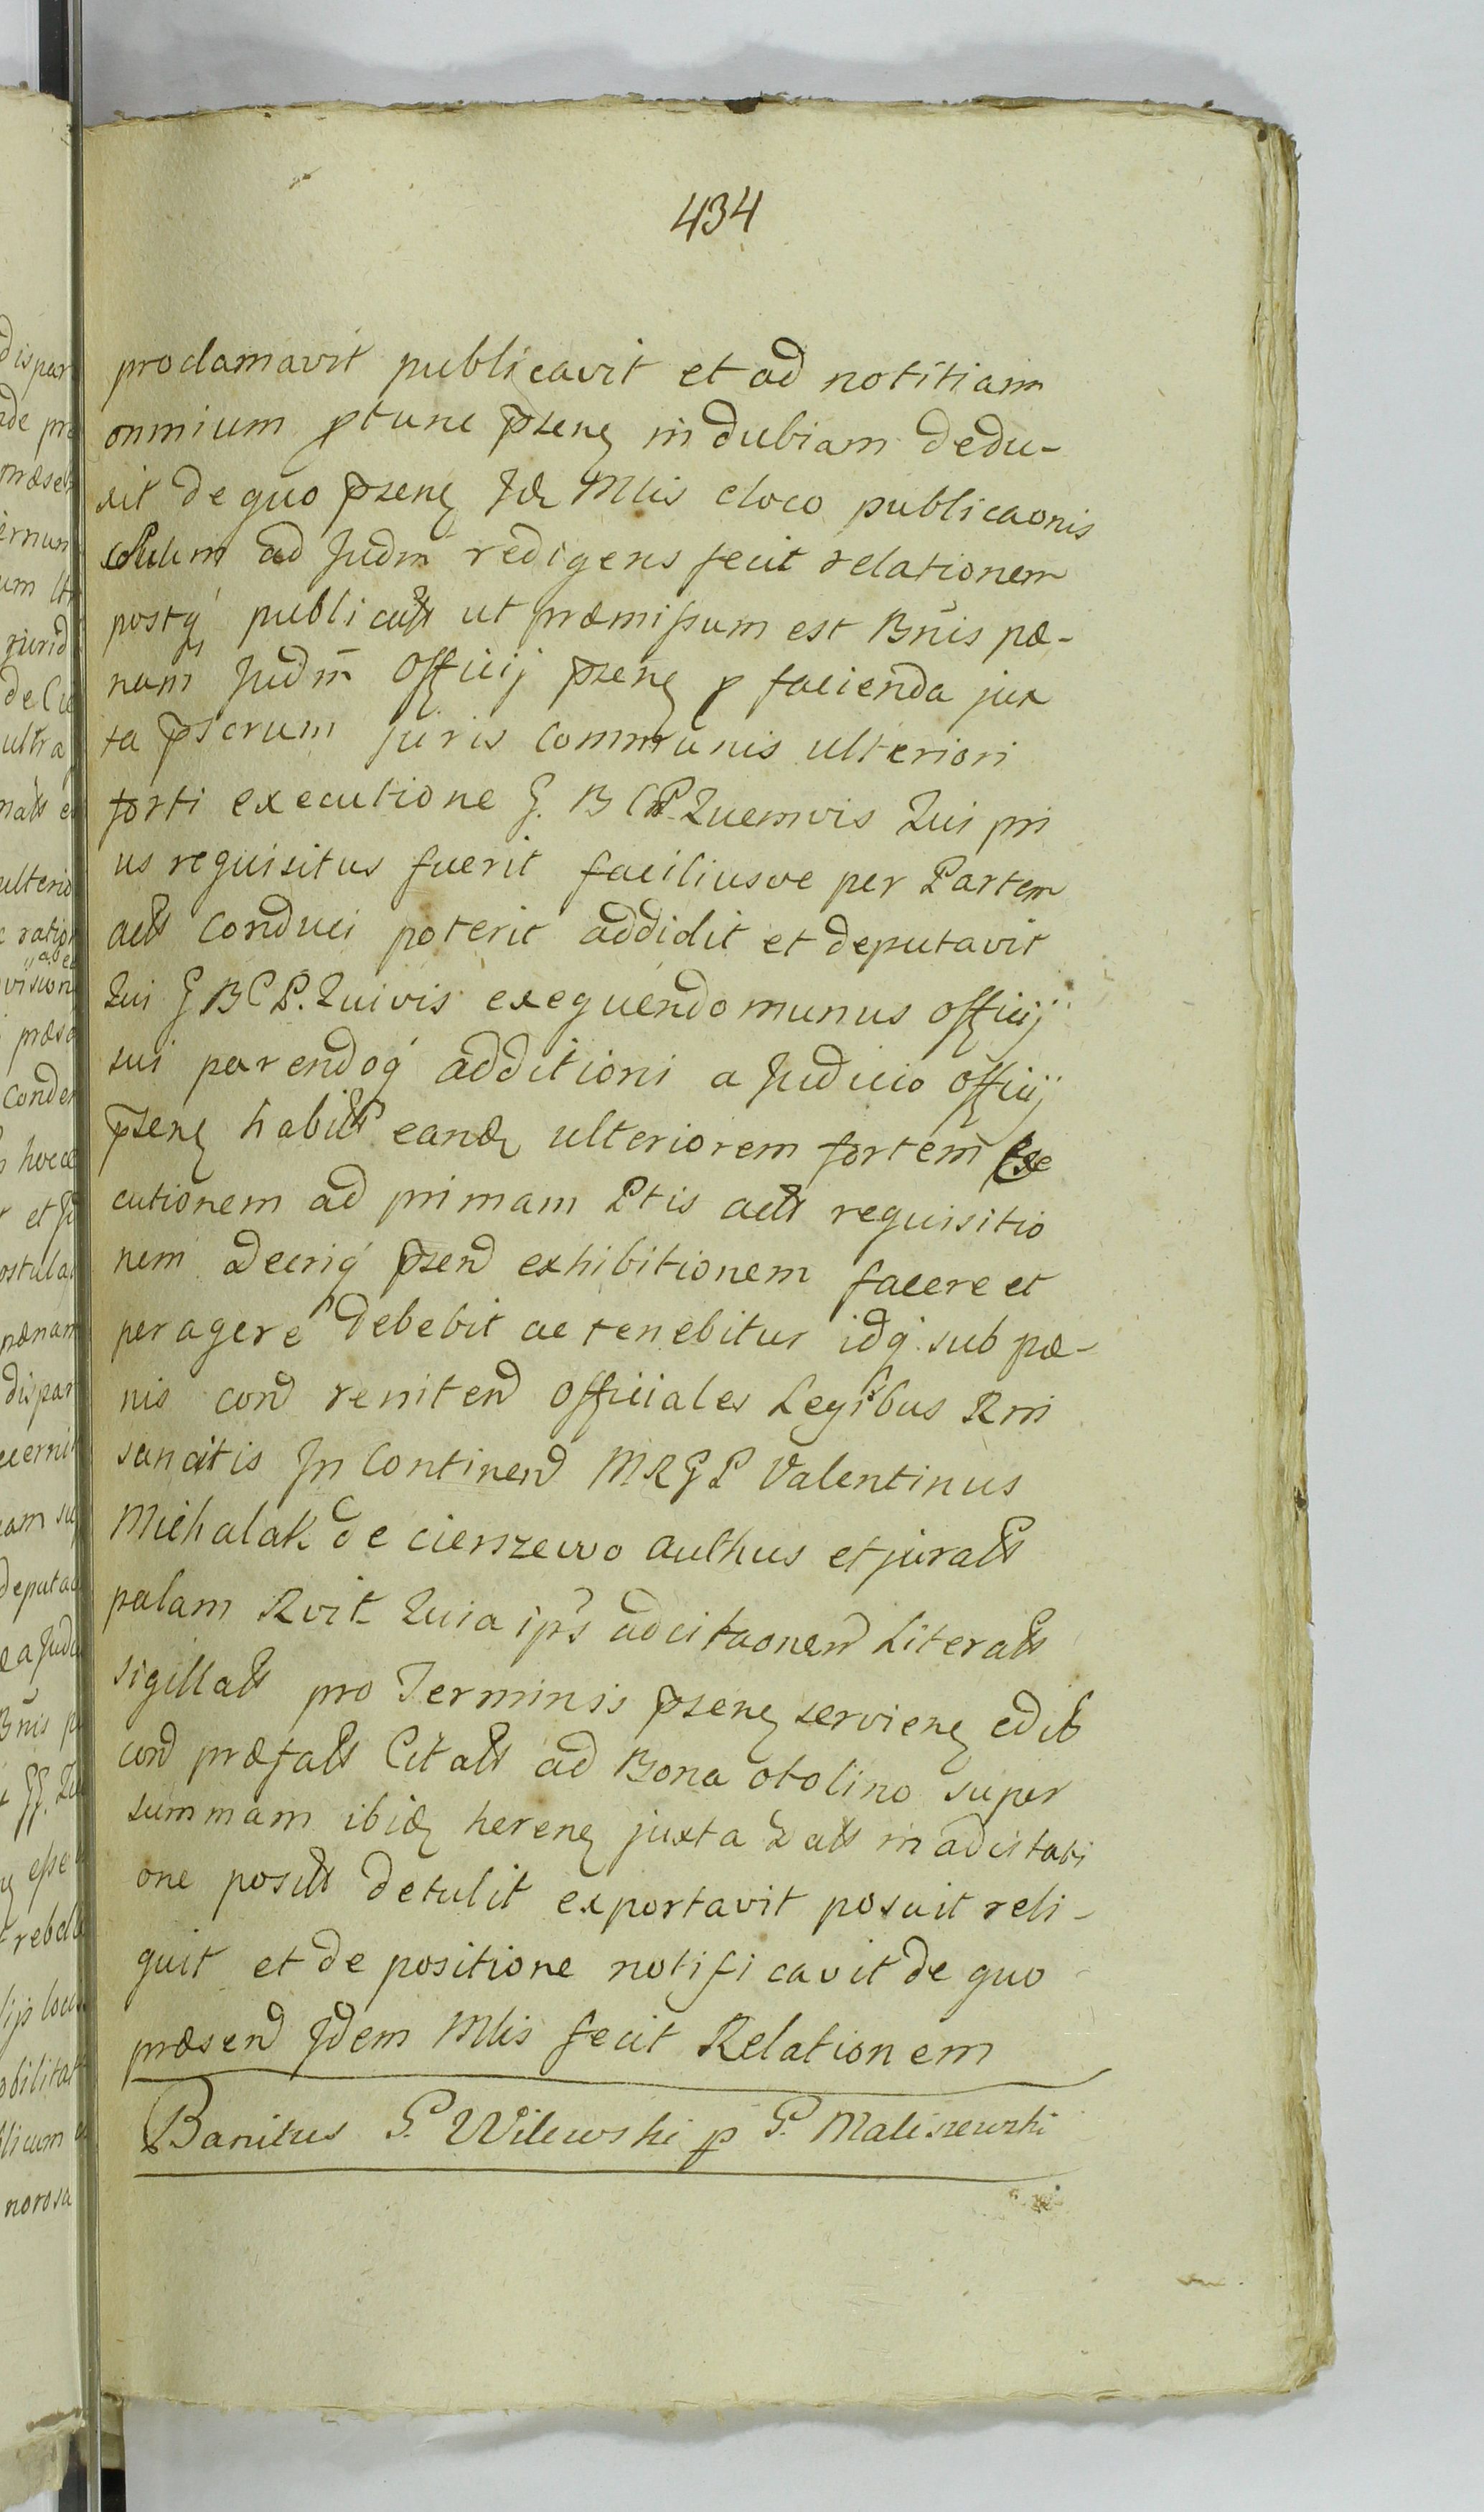 434
proclamavit publicavit et ad notitiam
omnium ptunc pzene indubiam dedu-
xit de quo pzene Ide Mlis eloco publicaonis
ad Judm redigens fecit relationem
postq publicatt ut præmissum est Bnis pæ-
nam Judm Officij pzene p facienda jux
ta pscrum juris communis ulteriori
forti executione G. B C P. Quemvis Qui pri
us requisitus fuerit faciliusve per Partem
actt conduci poterit addidit et deputavit
Qui G B C P. Quivis exequendo munus officij
sui parendoq additioni a Judicio officij
pzene habitt eande ulteriorem fortem Exe
cutionem ad primam Ptis actt requisitio
nem Decriq pzend exhibitionem facere et
peragere debebit ac tenebitur idq sub pæ-
nis cond renitend officiales Legibus Rni
sancitis In Continend M R G P Valentinus
Michalak de cierszewo authus et juratt
palam Rvit Quia ips adcitaonend Literatt
sigillatt pro Terminsis pzene serviene edit
cond præfatt Citatt ad Bona obolino super
summam ibide herene juxta Datt in adcitati
one positt detulit exportavit posuit reli-
quit et de positione notificavit de quo
præsend Idem Mlis fecit Relationem
Banitus P. Wilewski p P. Maliszewski